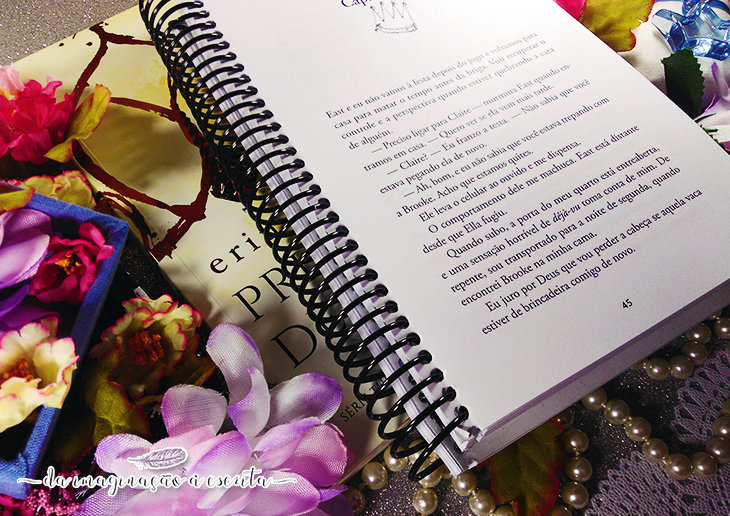 Cap
East e eu não vamos à festa depois do jogo e voltamos para
casa para matar o tempo antes da briga. Vou recuperar o
controle e a perspectiva quando estiver quebrando a cara
de alguém.
— Preciso ligar para Claire — murmura East quando en-
tramos em casa. — Quero ver se ela vem mais tarde.
— Claire? — Eu franzo a testa. — Não sabia que você
estava pegando ela de novo.
— Ah, bom, e eu não sabia que você estava trepando com
a Brooke. Acho que estamos quites.
Ele leva o celular ao ouvido e me dispensa.
O comportamento dele me machuca. East está distante
desde que Ella fugiu.
Quando subo, a porta do meu quarto está entreaberta,
e uma sensação horrível de déjà-vu toma conta de mim. De
repente, sou transportado para a noite de segunda, quando
encontrei Brooke na minha cama.
Eu juro por Deus que vou perder a cabeça se aquela vaca
estiver de brincadeira comigo de novo.
45
eri
PR
D
SÉRI
da imaginação à escrita